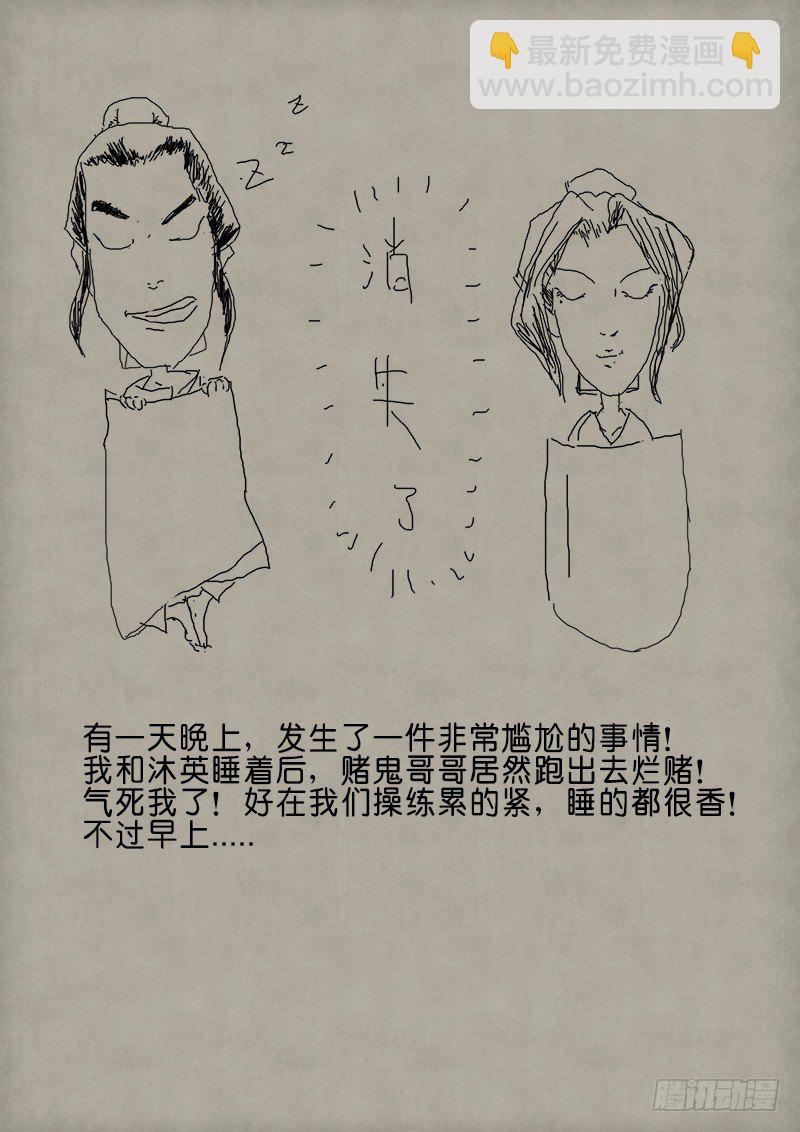 👇最新免费漫画👇
www.baozimh.com
z
z
z
消失了
有一天晚上，发生了一件非常尴尬的事情！
我和沐英睡着后，赌鬼哥哥居然跑出去烂赌！
气死我了！好在我们操练累的紧，睡的都很香！
不过早上.....
腾讯动漫